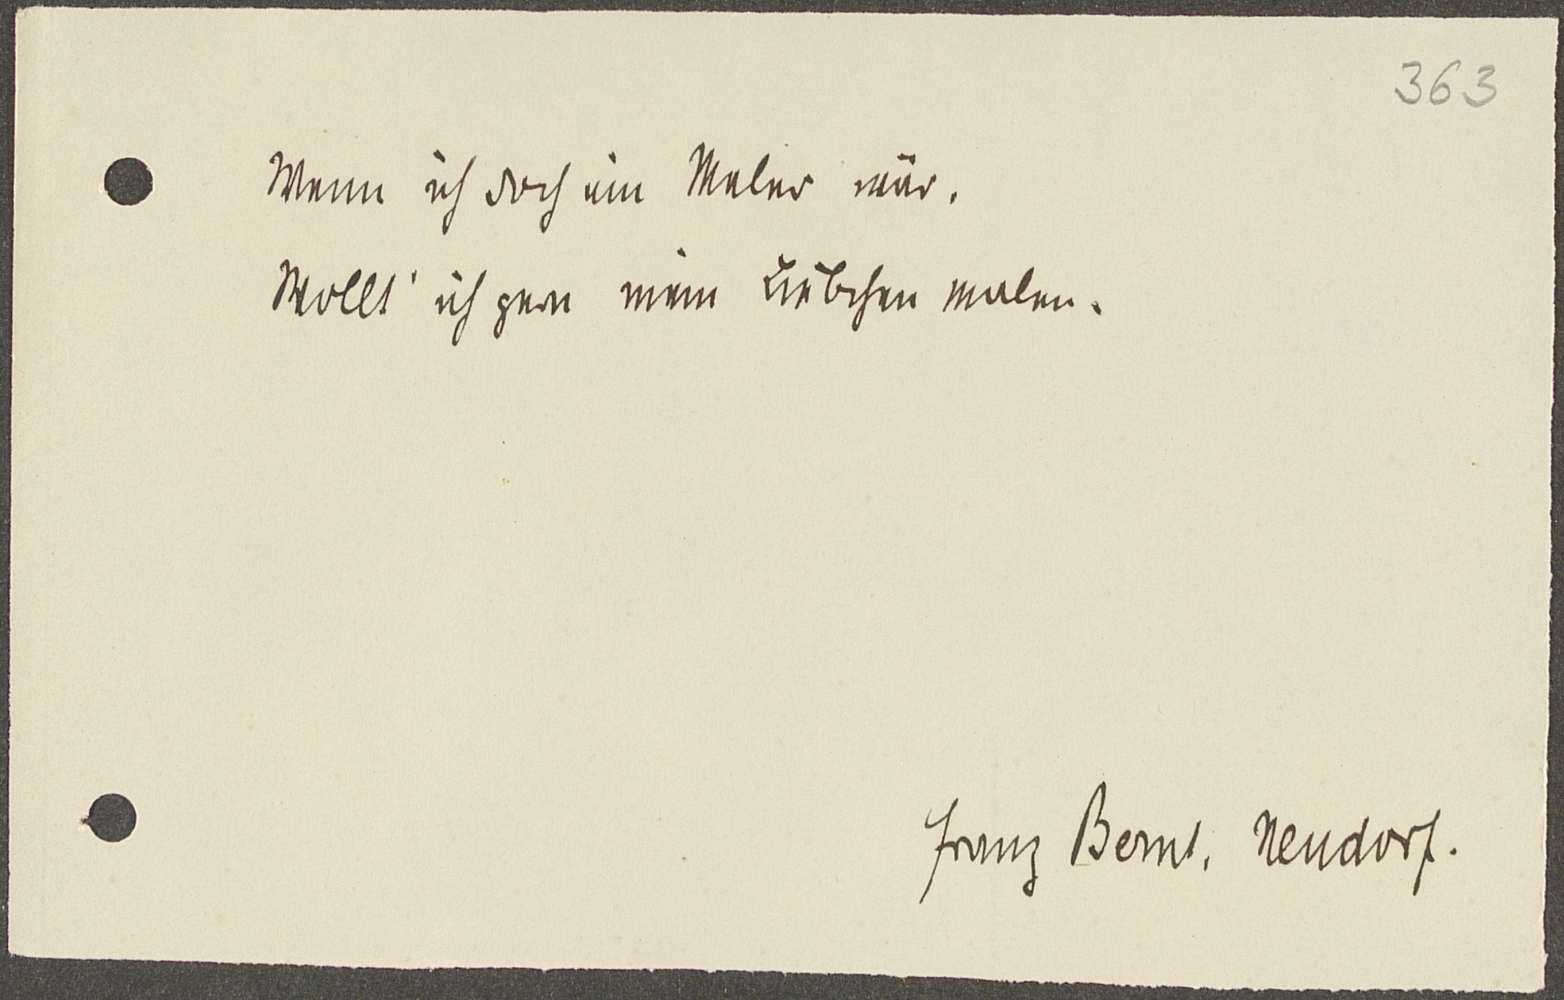 363
Wenn ich doch ein Maler wär,
Wollt' ich gern mein Liebchen malen.
Franz Bernt, Neudorf.